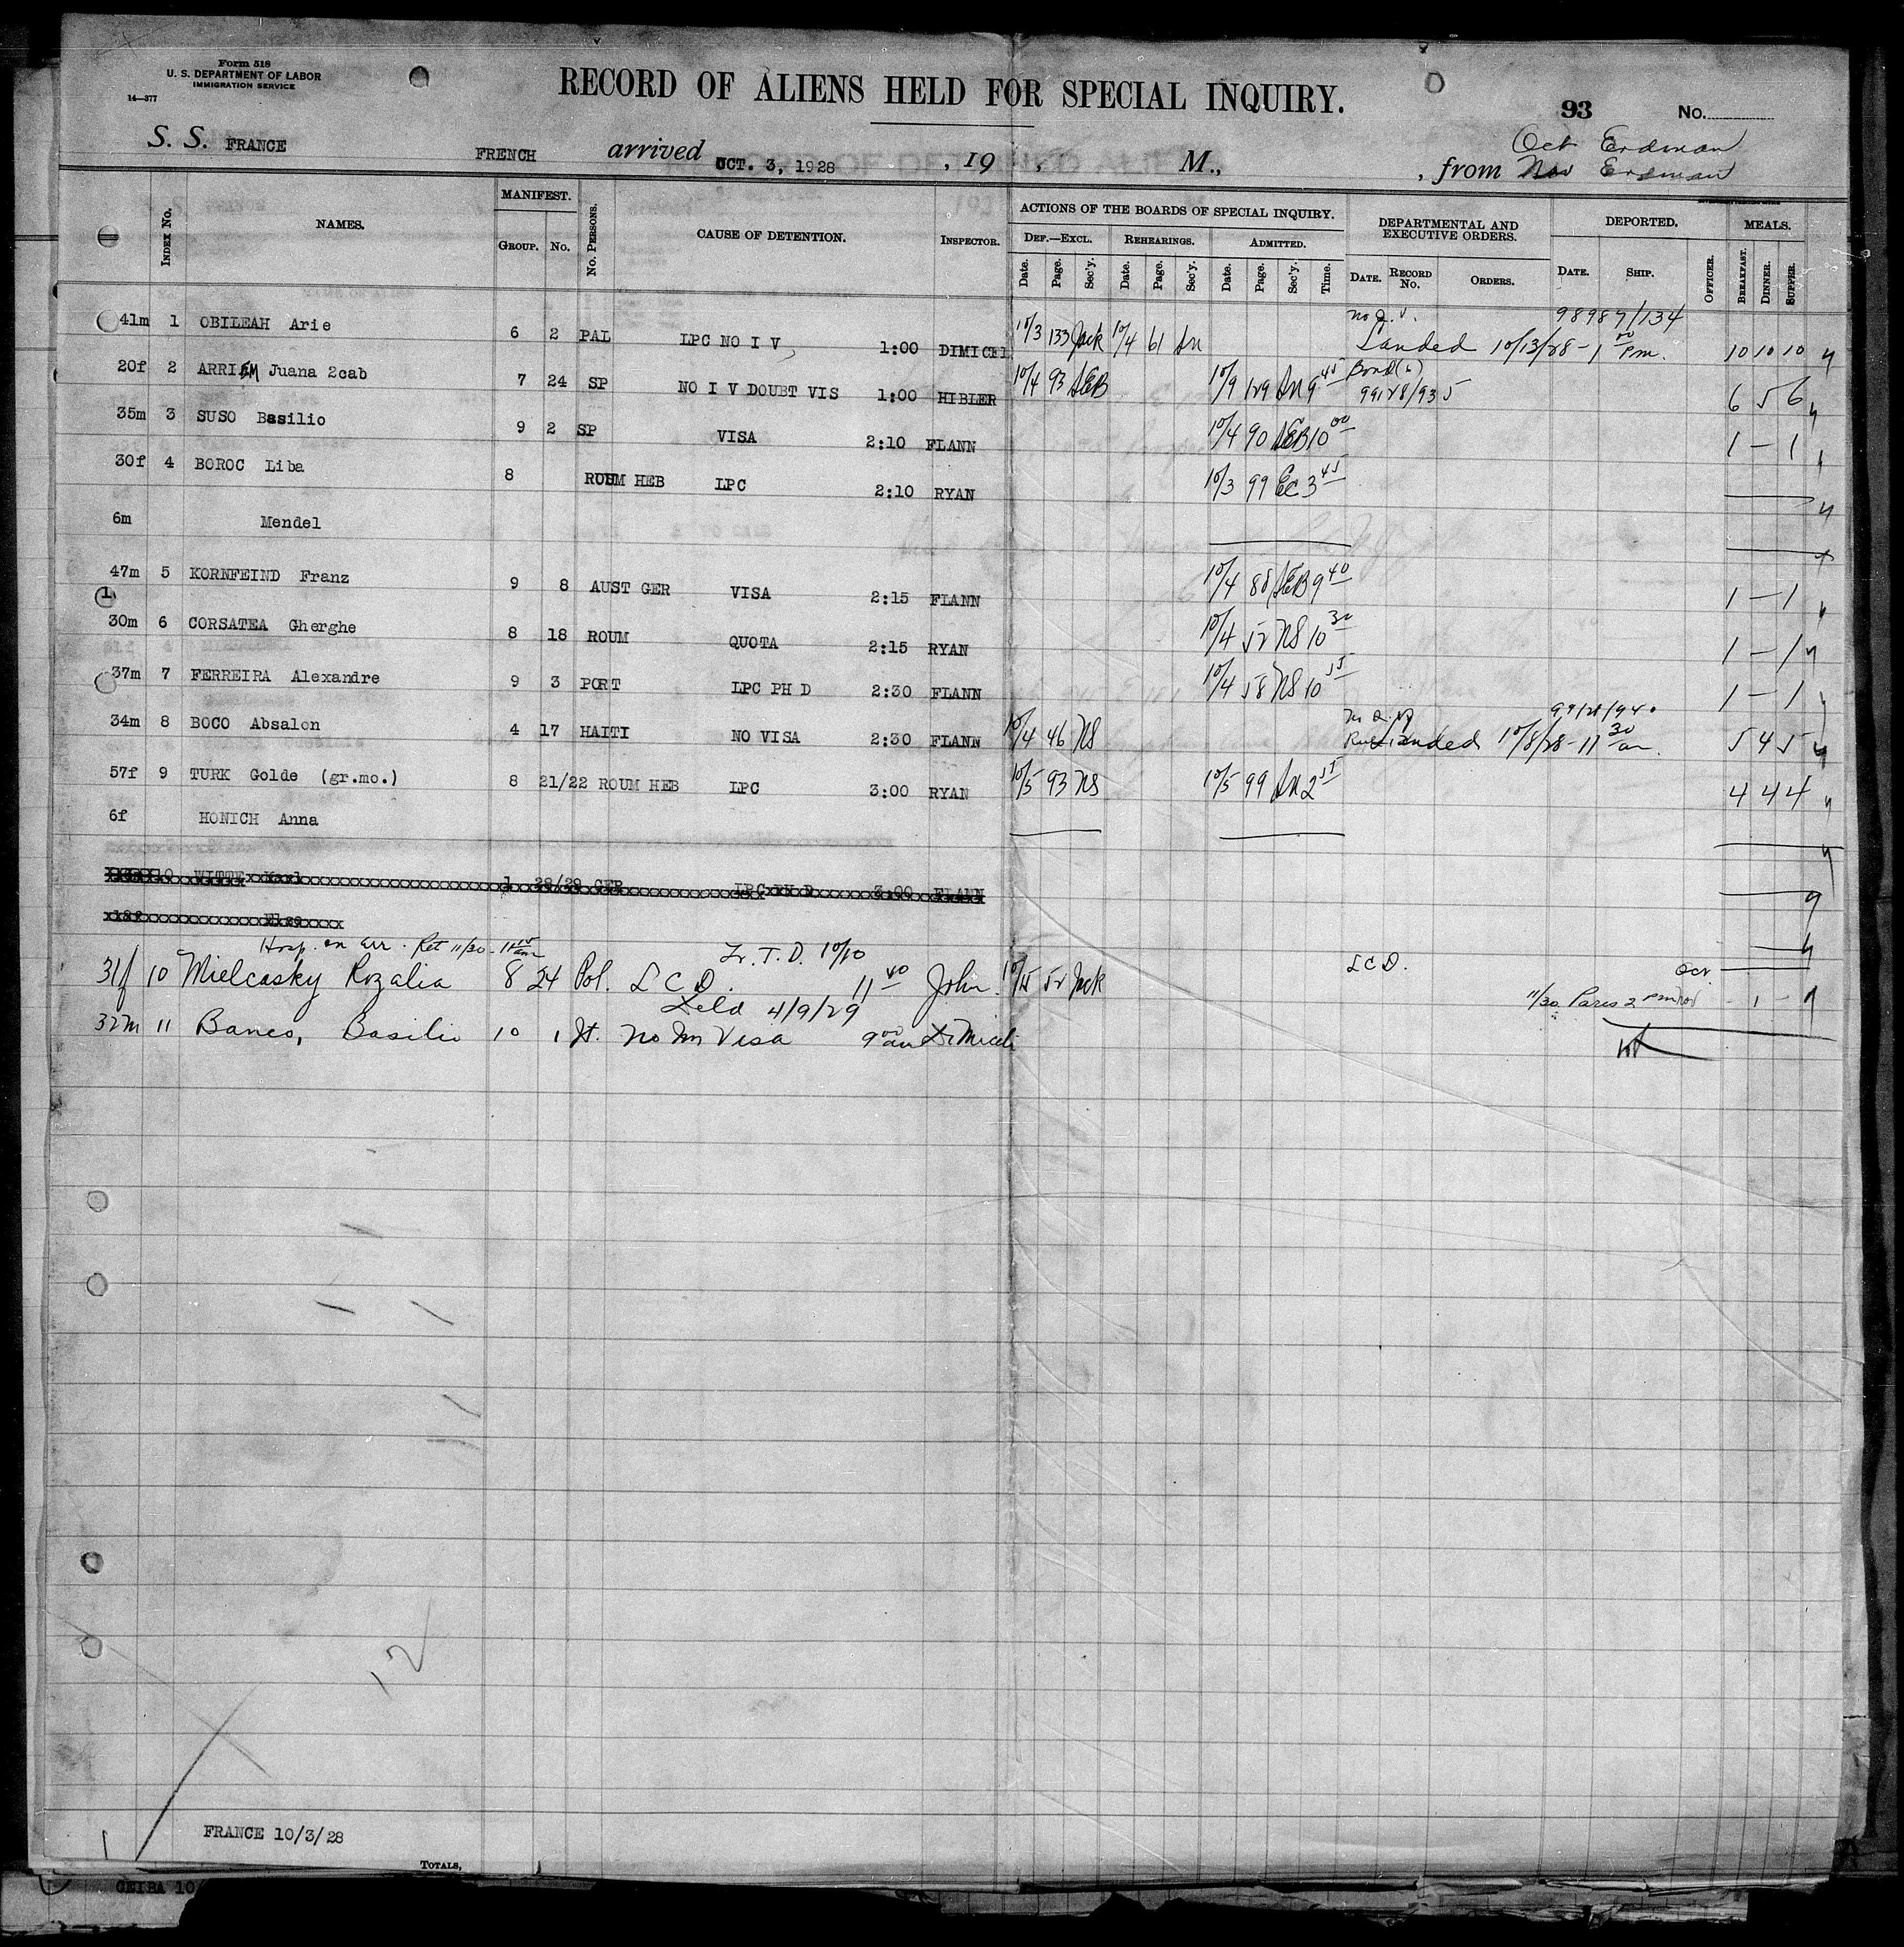 Form 518
U. S. DEPARTMENT OF LABOR
IMMIGRATION SERVICE
14—377
RECORD OF ALIENS HELD FOR SPECIAL INQUIRY.
93 No.
S. S. FRANCE FRENCH arrived OCT. 3, 1928 , 19 , M., , from Oct Erdman
Nov Erdman
INDEX No. NAMES. MANIFEST. GROUP. No. No. PERSONS. CAUSE OF DETENTION. INSPECTOR. ACTIONS OF THE BOARDS OF SPECIAL INQUIRY. DEPARTMENTAL AND EXECUTIVE ORDERS. DEPORTED. MEALS.
DEF.—EXCL. REHEARINGS. ADMITTED.
Date. Page. Sec'y. Date. Page. Sec'y. Date. Page. Sec'y. Time. DATE. RECORD No. ORDERS. DATE. SHIP. OFFICER. BREAKFAST. DINNER. SUPPER.
98987/134
41m 1 OBILEAH Arie 6 2 PAL LPC NO I V 1:00 DIMICEL 10/3 133 Jack 10/4 61 Landed 10/13/28 - 1 00 Pm. 10 10 10
20f 2 ARRIEM Juana 2cab 7 24 SP NO I V DOUBT VIS 1:00 HIBLER 10/4 93 AEB 10/9 129 9 45 Bond 99128/935 6 5 6
35m 3 SUSO Basilio 9 2 SP VISA 2:10 FLANN 10/4 90 AEB 10 00 1 — 1
30f 4 BOROC Liba 8 ROUM HEB LPC 2:10 RYAN 10/3 99 EC 3 45
6m Mendel
47m 5 KORNFEIND Franz 9 8 AUST GER VISA 2:15 FLANN 10/4 88 AEB 9 40 1 — 1
1
30m 6 CORSATEA Gherghe 8 18 ROUM QUOTA 2:15 RYAN 10/4 52 NS 10 30 1 — 1
37m 7 FERREIRA Alexandre 9 3 PORT LPC PH D 2:30 FLANN 10/4 58 NS 10 55 1 — 1
34m 8 BOCO Absalon 4 17 HAITI NO VISA 2:30 FLANN 10/4 46 NS Landed 10/8/28 - 11 30 am. 5 4 5
57f 9 TURK Golde (gr.mo.) 8 21/22 ROUM HEB LPC 3:00 RYAN 10/5 93 NS 10/5 99 2 55 4 4 4
6f HONICH Anna
10 WITTE Karl 1 28/29 GER LPC PH D 3:00 FLANN
18f Else
Hosp. on arr. Ret 11/30 - 11 15 am Tr. T. D. 10/10
31f 10 Mielcasky Rozalia 8 24 Pol. L C D. 11 40 John. 10/15 52 Jack L C D. 11/30 Paris 2 pm - 1 -
Held 4/9/29
32m 11 Banco, Basilio 10 1 It. No Im Visa 9 00 am DiMiceli
12
FRANCE 10/3/28
TOTALS,
CEIBA 10/